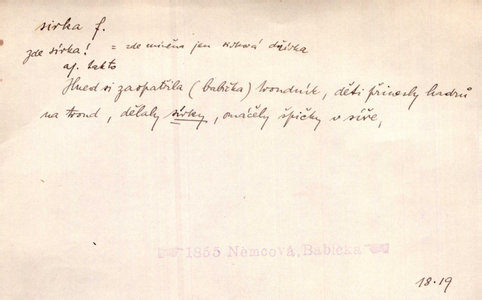 sirka f.
zde sírka! = zde míněna jen
aj. takto
Hned si zaopatřila (babička) troudník, děti přinesly hadrů
na troud, dělaly sírky, omáčely špičky v síře,
1855 Němcová, Babička
18.19